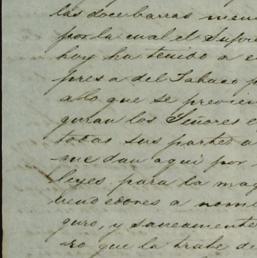 las doce barras men
por la cual el Supre
hoy ha tenido a
presa del Tabaco p
a lo que se previen
guran los Señores
todas sus partes a
me dan aquí por
leyes para la ma
vendedores a nom
guro, y saneamente
ro que la trabe de